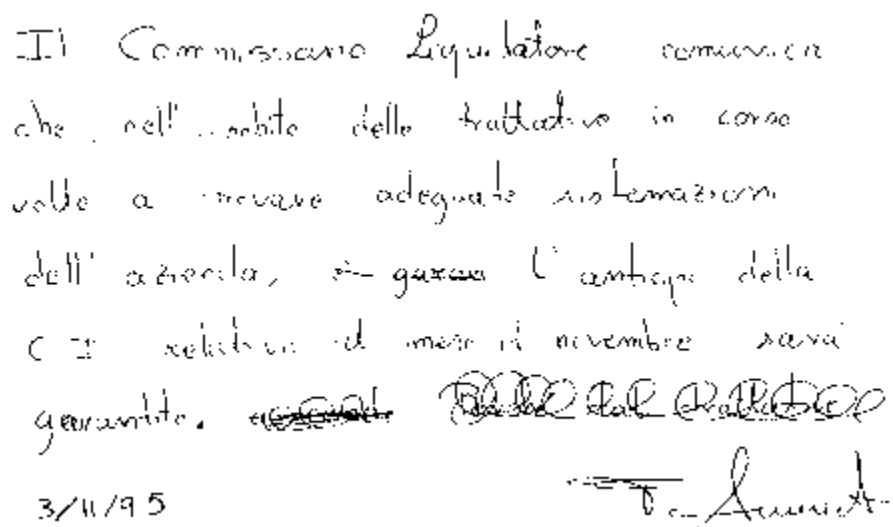 Il Commissario Liquidatore comunica
che, nell'ambito delle trattative in corso
volte a trovare adeguate sistemazioni
dell'azienda, l'anticipo della
C I relativa al mese di novembre sarà
garantito.
3/11/95